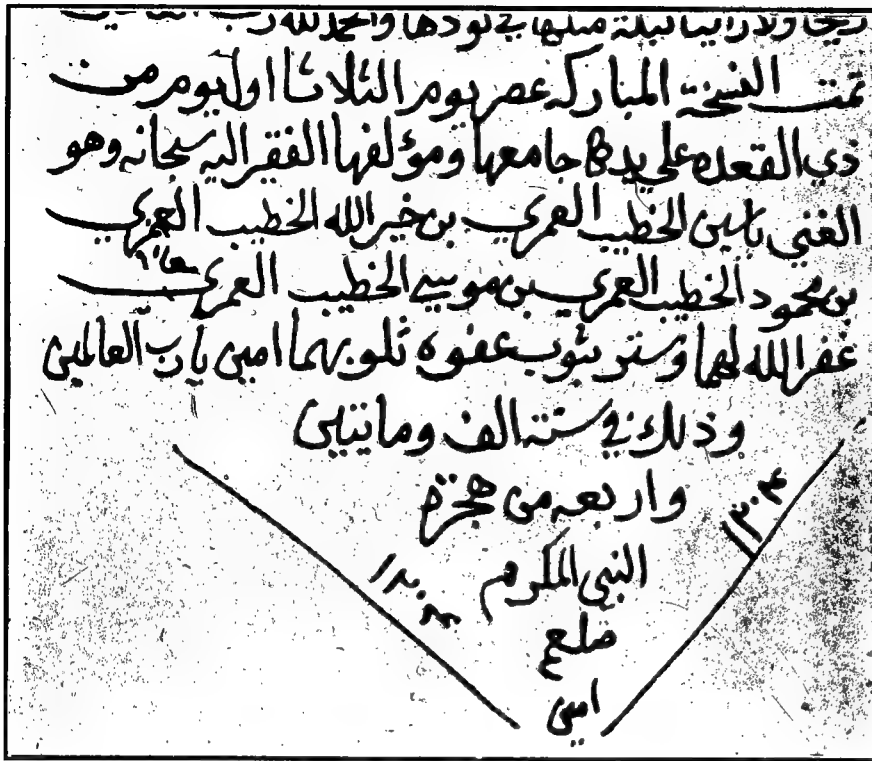 ريحا ولا راينا ليلة مثلها في نودها والحمد لله رب
تمت النسخة المباركه عصر يوم الثلاثا اول يوم من
ذي القعده على يد جامعها ومؤلفها الفقر اليه سبحانه وهو
الغني ياسين الخطيب العمري بن خير الله الخطيب العمري
بن محمود الخطيب العمري بن موسى الخطيب العمري
غفر الله لهما وستر بثوب عفوه ثلوبهما امين يا رب العالمين
وذلك في سنة الف وماتيين
واربعه من هجرة
النبي المكرم
صلعم
امين
١٢٠٤
١٢٠٤